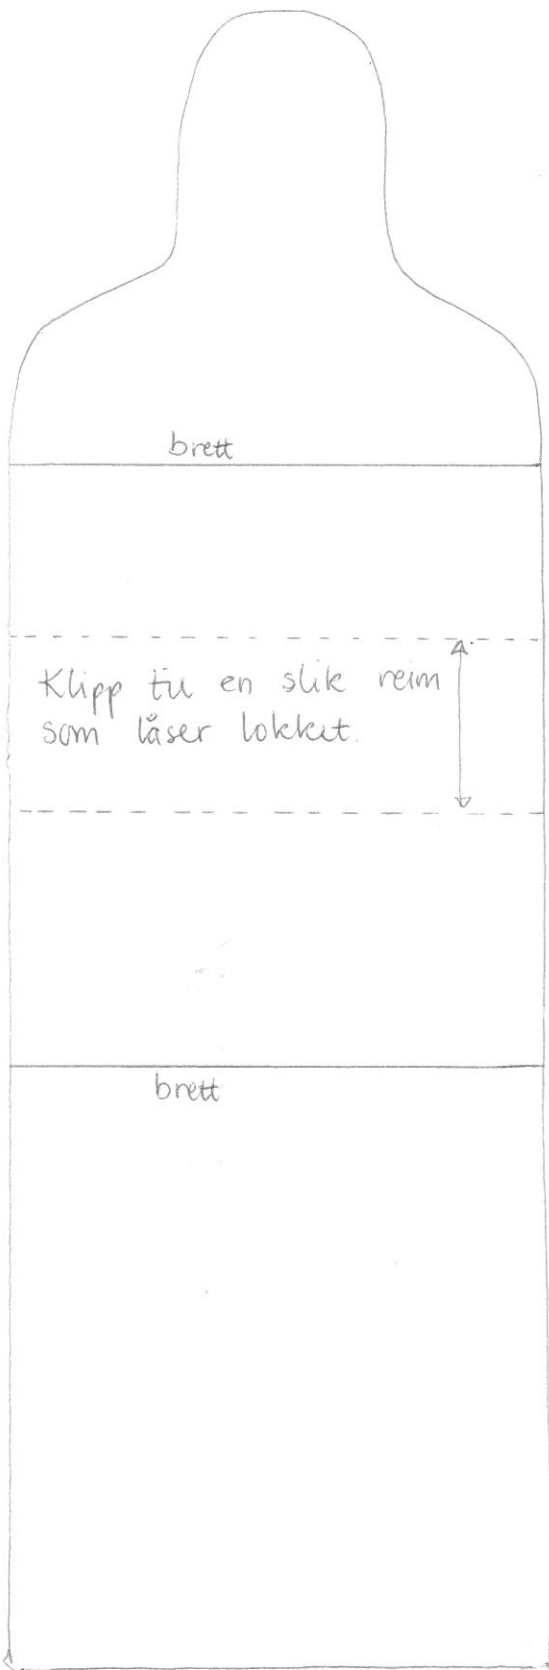 brett
Klipp til en slik reim
som låser lokket.
brett